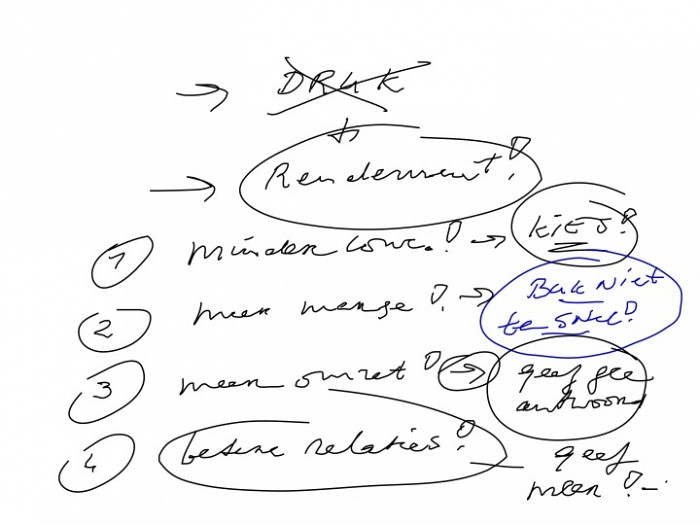 → DRUK
→ Rendement!
1 minder conc.! → KIES!
2 meer marge! → Buk niet
te snel!
3 meer omzet! → geef gee
antwoord
4 betere relaties! – geef
meer!